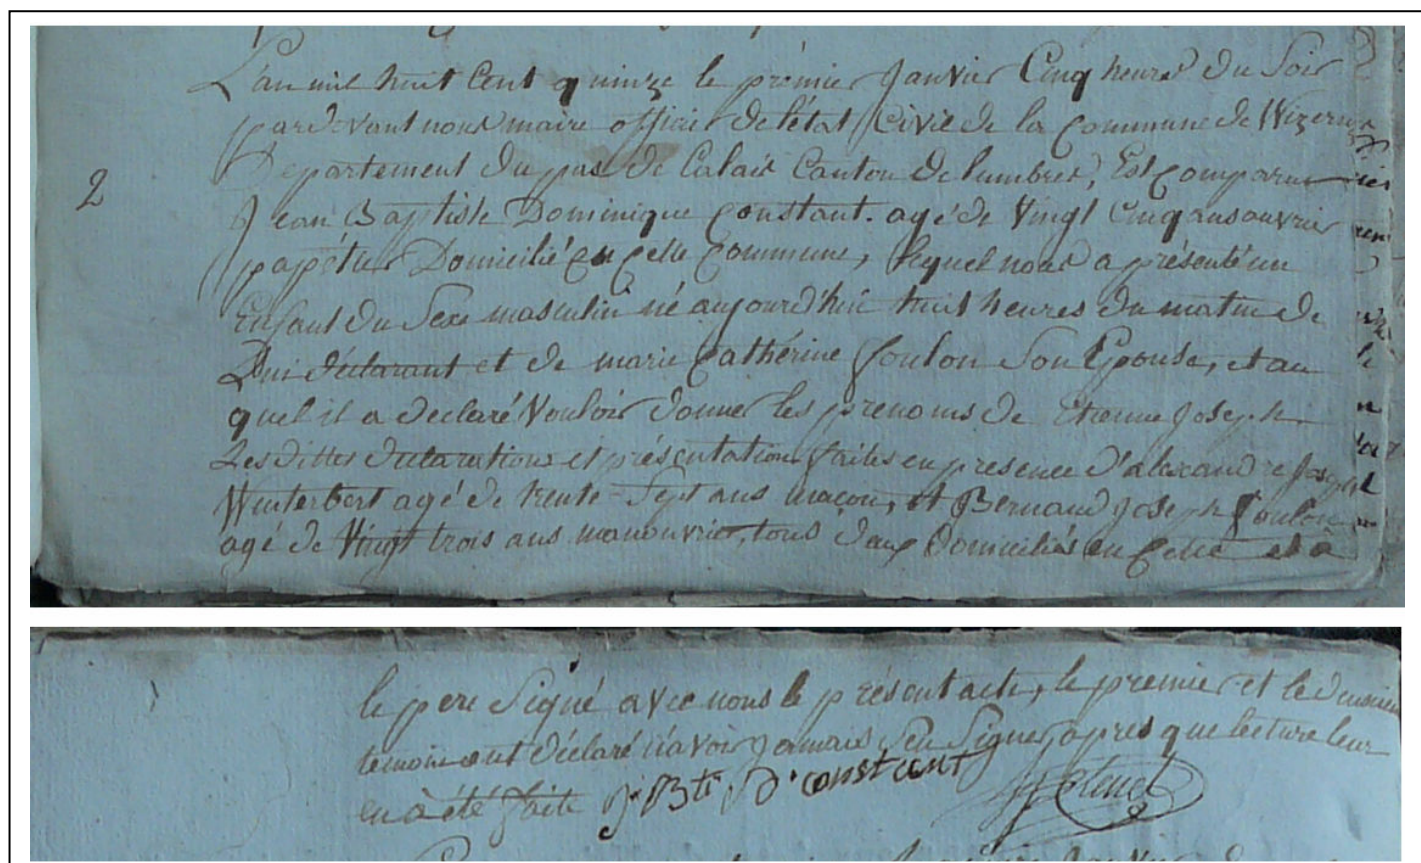 L'an mil huit Cent quinze le premier Janvier Cinq heures du Soir
pardevant nous maire officier de l'état Civil de la Commune de Wizernes
Departement du pas de Calais Canton de lumbres, Est Comparu
Jean Baptiste Dominique Constant. agé de Vingt Cinq ans ouvrier
2
papétier Domicilié en Cette Commune, lequel nous a présenté un
Enfant du Sexe masculin né aujourd'hui huit heures du matin de
Lui déclarant et de marie Cathérine foulon Son Epouse, et au
quel il a declaré Vouloir donner les prenoms de Etienne Joseph
Les dittes declarations et présentation faites en presence d'alexandre Joseph
Winterbert agé de trente-Sept ans maçon, et Bernard Joseph foulon
agé de Vingt trois ans manouvrier, tous deux Domiciliés en Cette et a
le pere Signé avec nous le présent acte, le premier et le deuxieme
temoin ont déclaré n'avoir Jamais Seu Signer, apres que lecture leur
en à été faite J. Bte D. constant